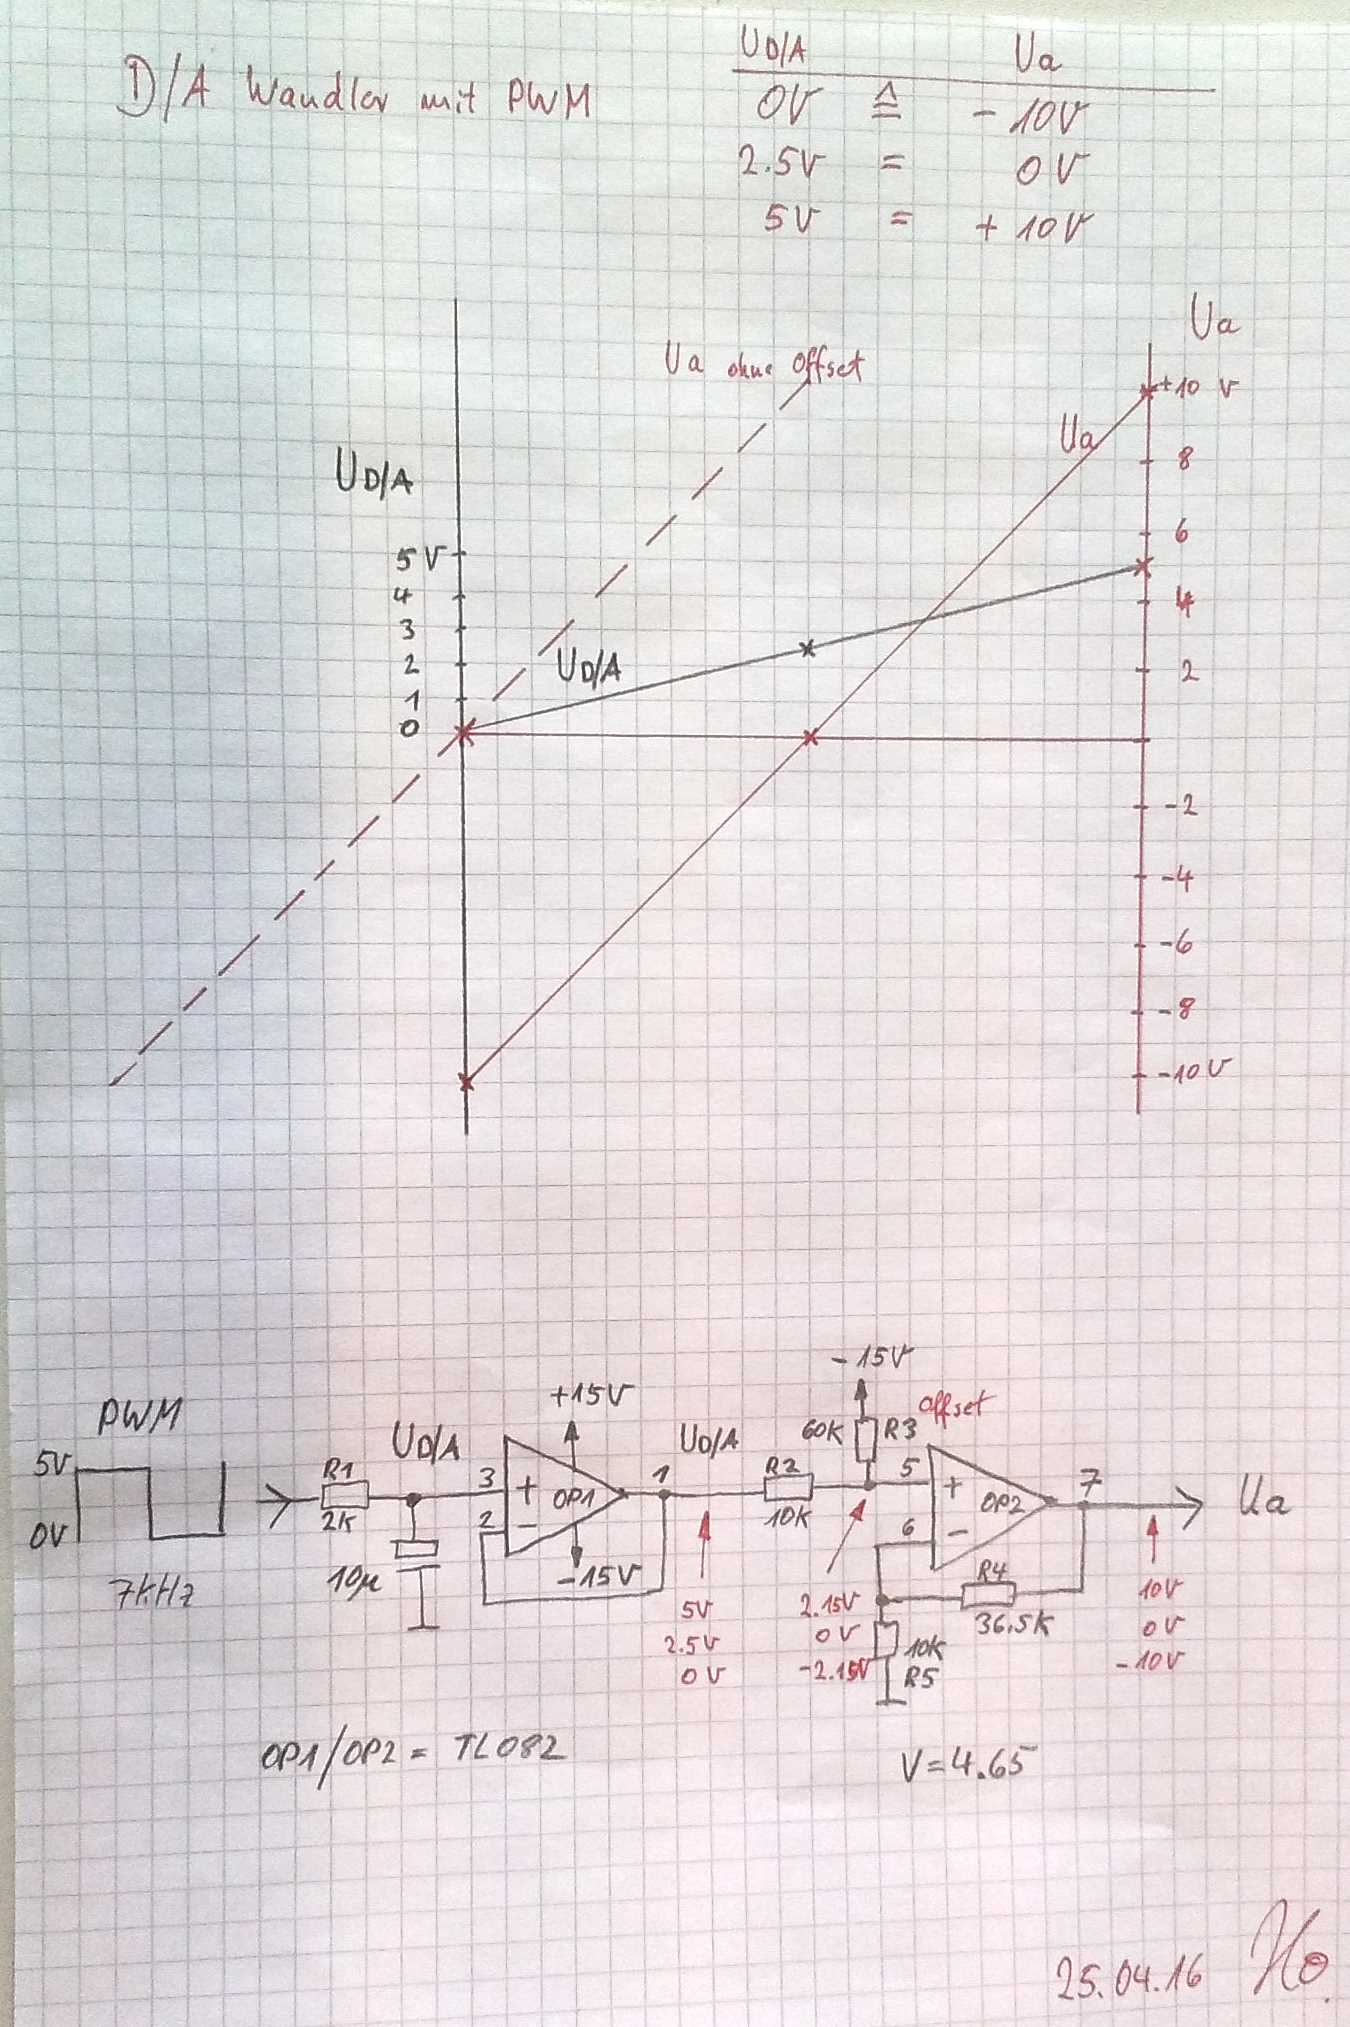 D/A Wandler mit PWM
UD/A Ua
0V ≙ - 10V
2.5V = 0V
5V = + 10V
Ua
Ua ohne Offset
+10 V
Ua
8
UD/A
6
5V
4
4
3
2
UD/A
2
1
0
-2
-4
-6
-8
-10V
-15V
+15V
Offset
PWM
60K R3
UD/A
UD/A
5V
R1
3
+
OP1
1
R2
5
+
OP2
7
Ua
0V
2K
2
-
10K
6
-
7KHz
10µ
-15V
R4
36.5K
5V
2.5V
0V
2.15V
0V
-2.15V
10K
R5
10V
0V
-10V
OP1/OP2 = TL082
V=4.65
25.04.16 Ho